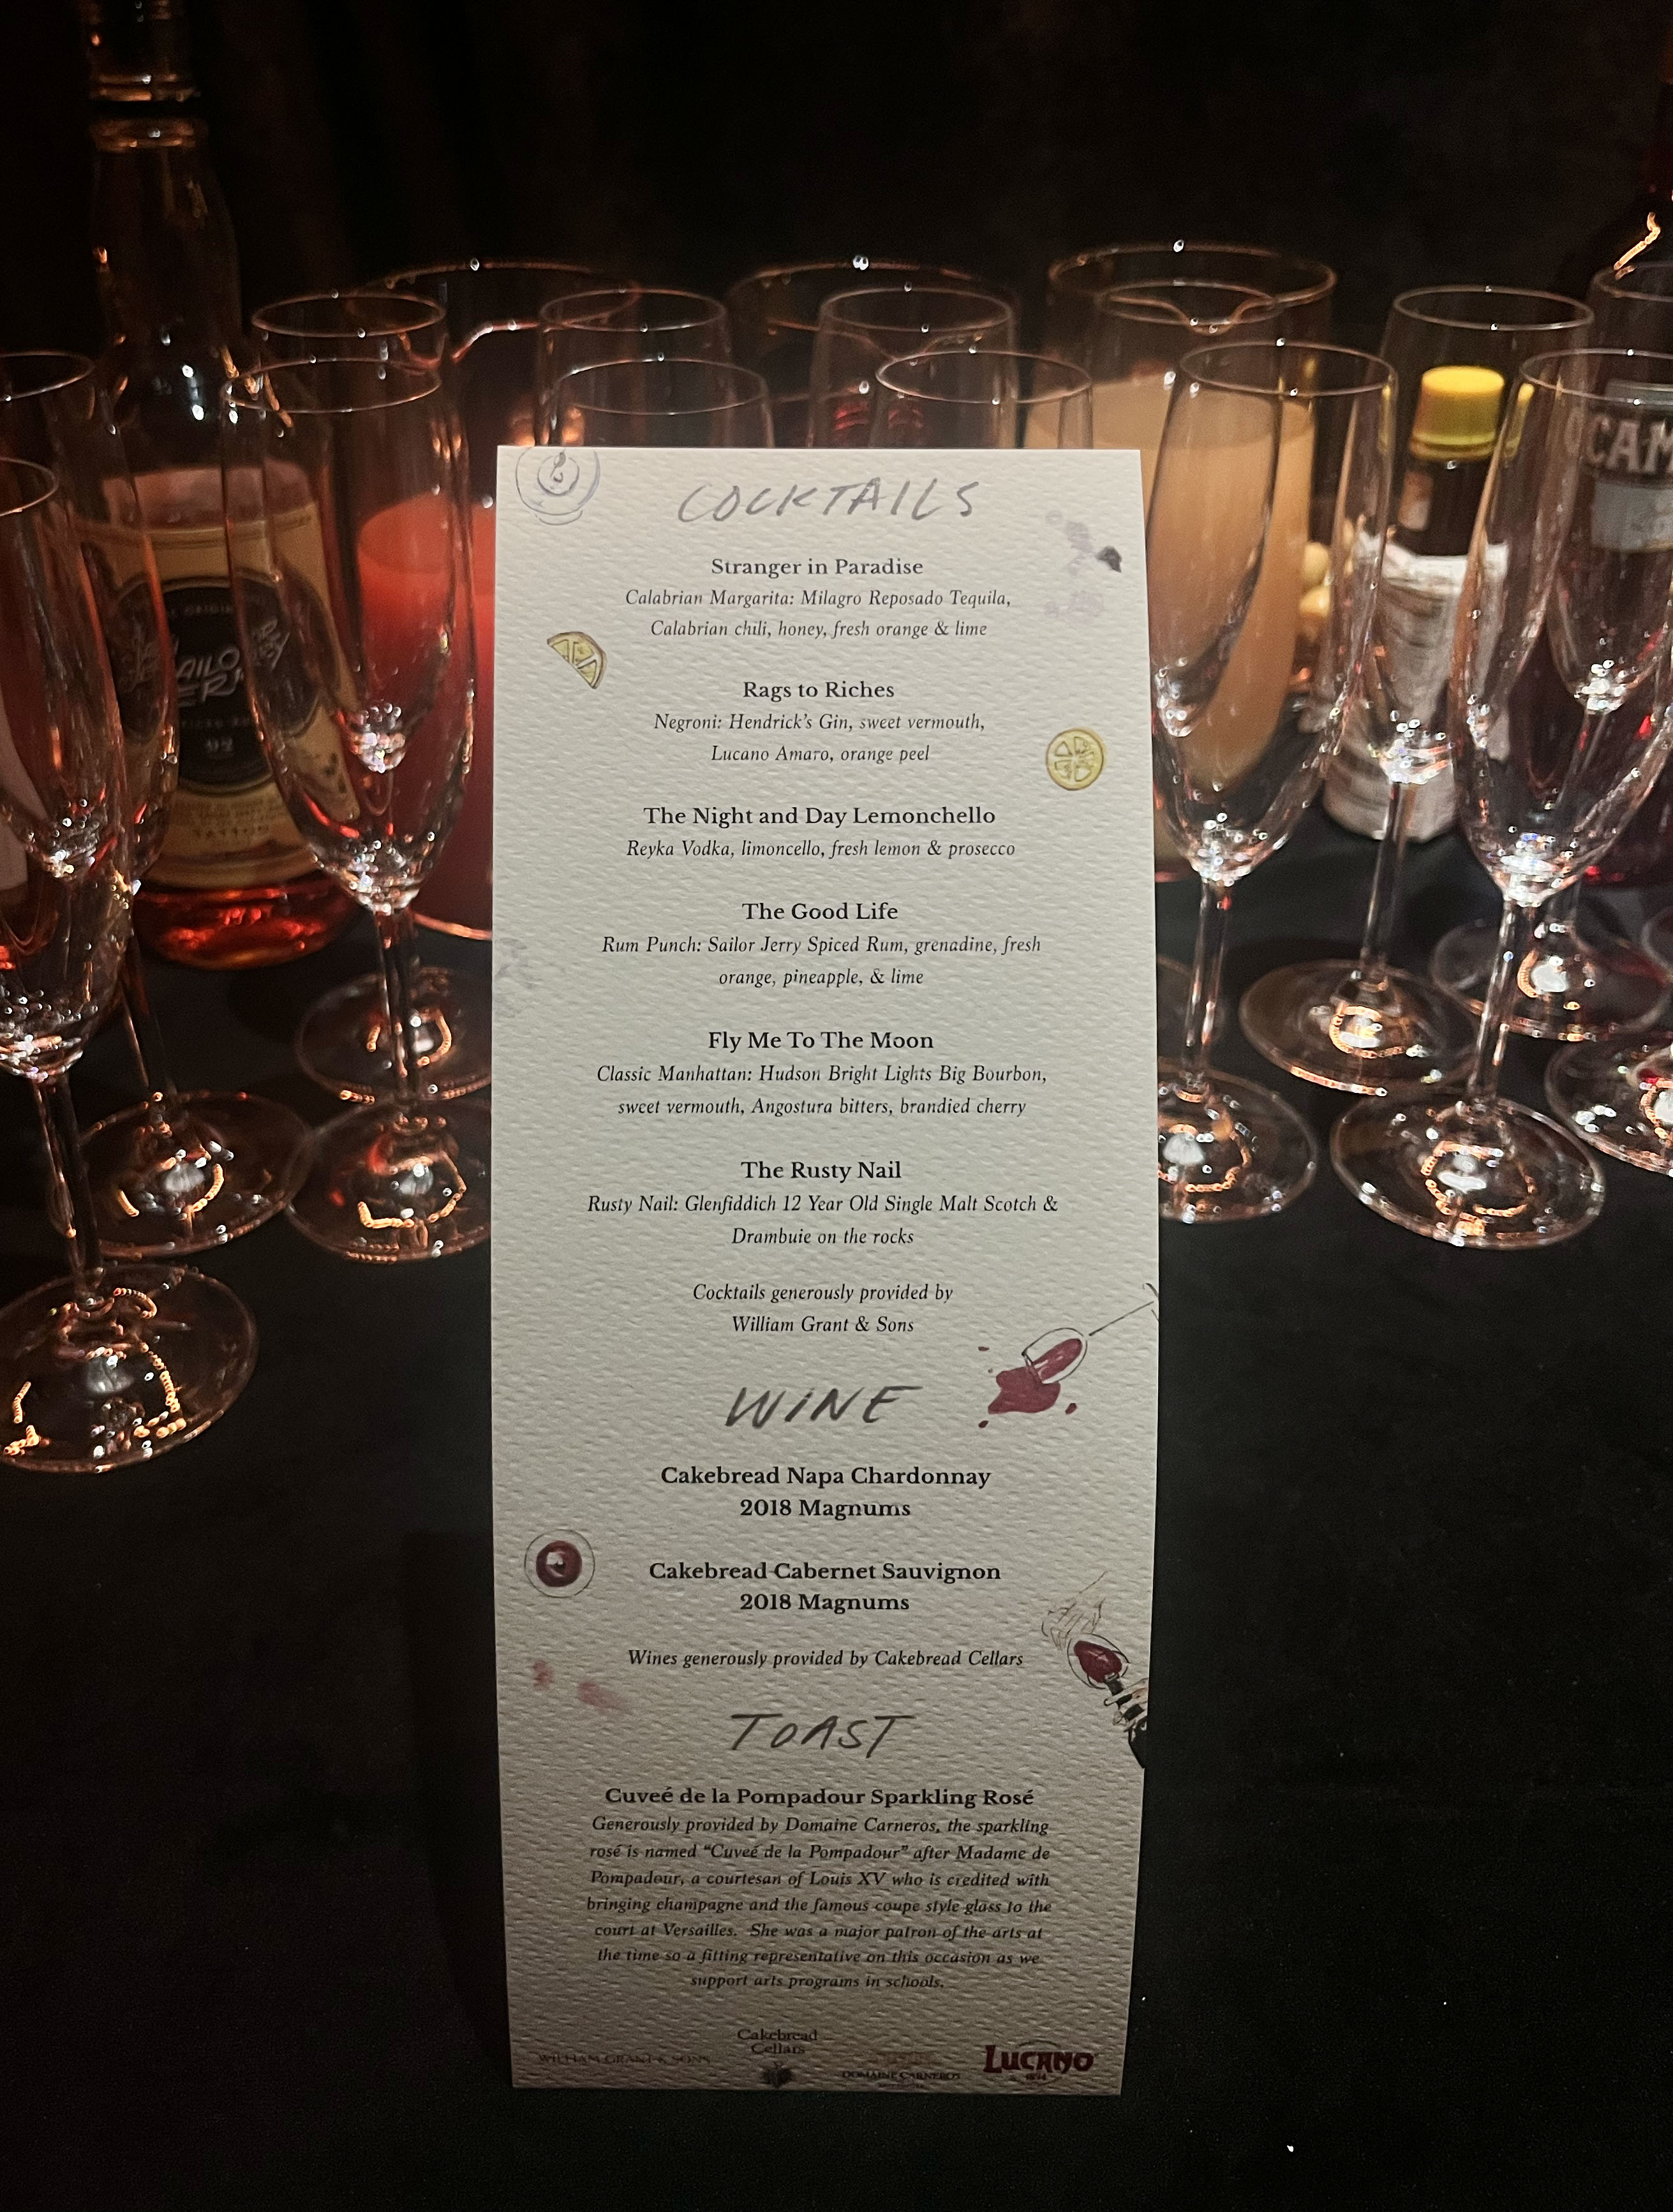 COCKTAILS
Stranger in Paradise
Calabrian Margarita: Milagro Reposado Tequila,
Calabrian chili, honey, fresh orange & lime
Rags to Riches
Negroni: Hendrick's Gin, sweet vermouth,
Lucano Amaro, orange peel
The Night and Day Lemonchello
Reyka Vodka, limoncello, fresh lemon & prosecco
The Good Life
Rum Punch: Sailor Jerry Spiced Rum, grenadine, fresh
orange, pineapple, & lime
Fly Me To The Moon
Classic Manhattan: Hudson Bright Lights Big Bourbon,
sweet vermouth, Angostura bitters, brandied cherry
The Rusty Nail
Rusty Nail: Glenfiddich 12 Year Old Single Malt Scotch &
Drambuie on the rocks
Cocktails generously provided by
William Grant & Sons
WINE
Cakebread Napa Chardonnay
2018 Magnums
Cakebread Cabernet Sauvignon
2018 Magnums
Wines generously provided by Cakebread Cellars
TOAST
Cuveé de la Pompadour Sparkling Rosé
Generously provided by Domaine Carneros, the sparkling
rosé is named “Cuveé de la Pompadour” after Madame de
Pompadour, a courtesan of Louis XV who is credited with
bringing champagne and the famous coupe style glass to the
court at Versailles. She was a major patron of the arts at
the time so a fitting representative on this occasion as we
support arts programs in schools.
WILLIAM GRANT & SONS
Cakebread
Cellars
DOMAINE CARNEROS
LUCANO
1894
CAM
AILO
ER
92